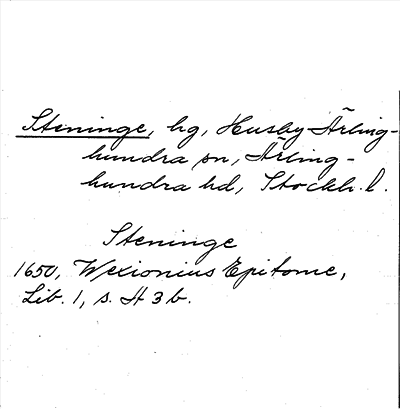 Steninge, hg, Husby-Ärling-
hundra sn, Ärling-
hundra hd, Stockh. l.
Steninge
1650, Wexionius Epitome,
Lib. 1, s. H 3 b.